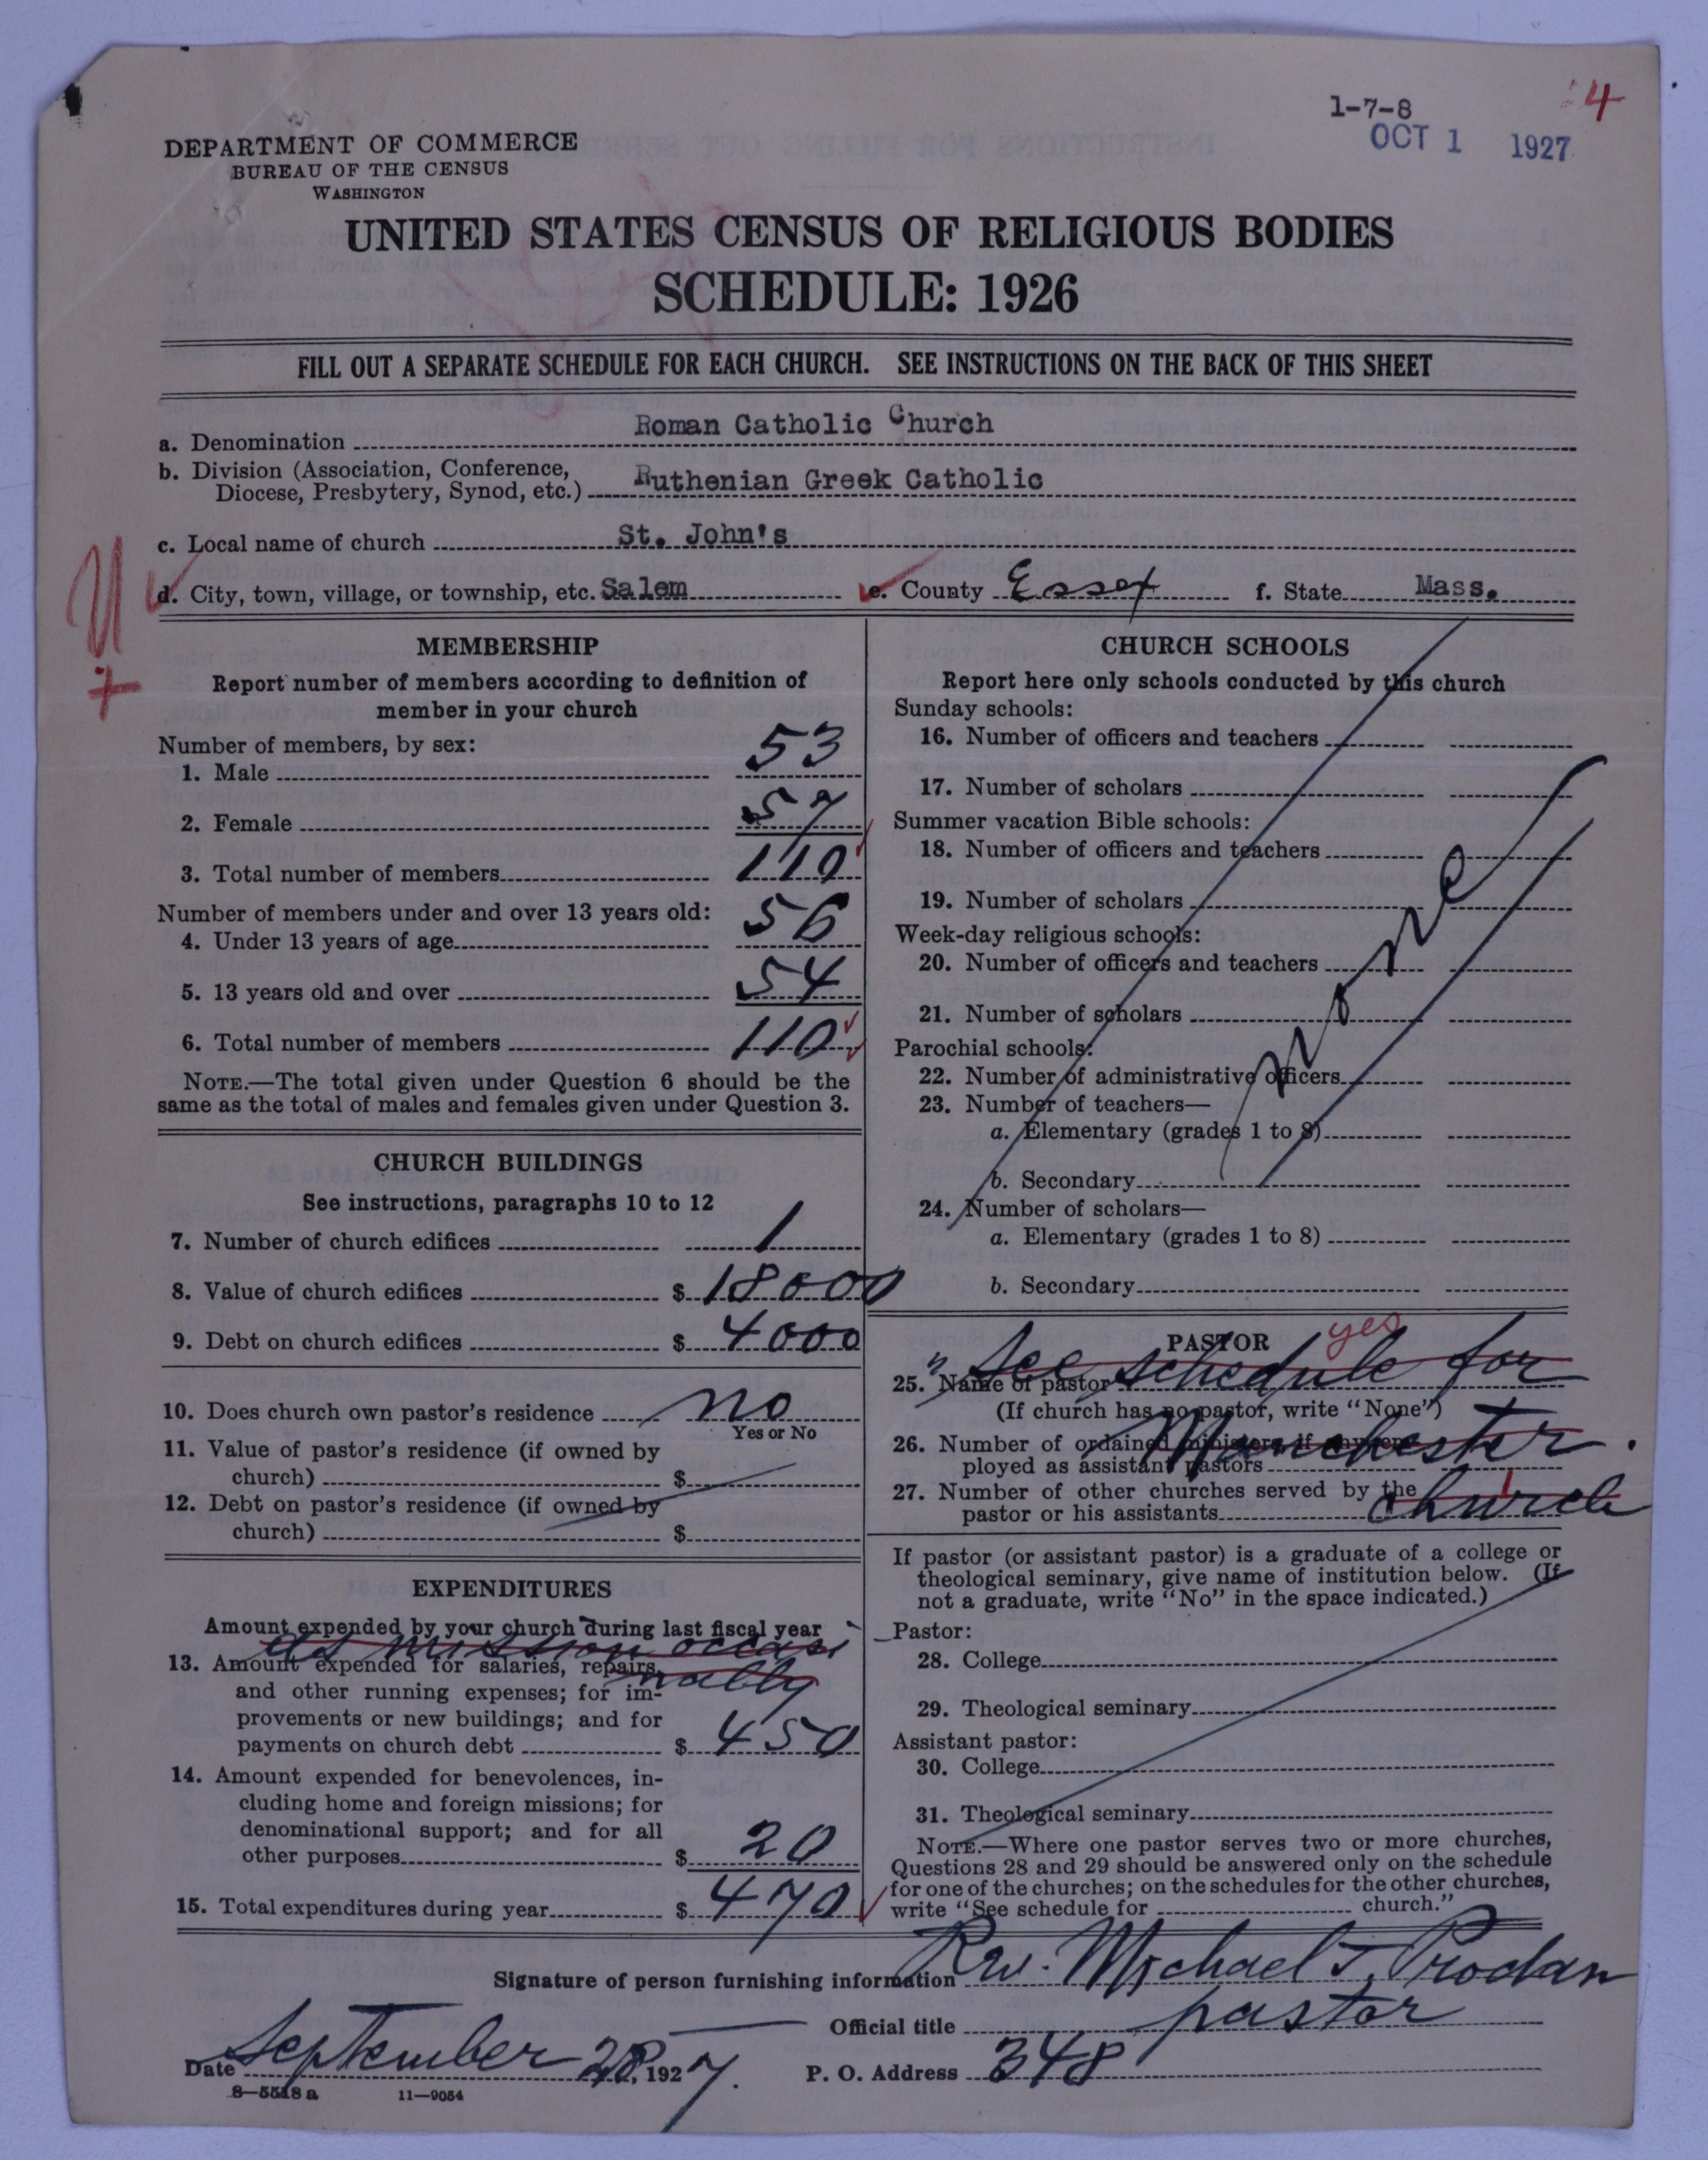 1-7-8
4
OCT 1 1927
DEPARTMENT OF COMMERCE
BUREAU OF THE CENSUS
WASHINGTON
UNITED STATES CENSUS OF RELIGIOUS BODIES
SCHEDULE: 1926
FILL OUT A SEPARATE SCHEDULE FOR EACH CHURCH. SEE INSTRUCTIONS ON THE BACK OF THIS SHEET
a. Denomination Roman Catholic Church
b. Division (Association, Conference,
Diocese, Presbytery, Synod, etc.) Ruthenian Greek Catholic
c. Local name of church St. John's
d. City, town, village, or township, etc. Salem e. County Essex f. State Mass.
MEMBERSHIP
Report number of members according to definition of
member in your church
Number of members, by sex:
1. Male 53
2. Female 57
3. Total number of members 110
Number of members under and over 13 years old:
4. Under 13 years of age 56
5. 13 years old and over 54
6. Total number of members 110
NOTE.—The total given under Question 6 should be the
same as the total of males and females given under Question 3.
CHURCH BUILDINGS
See instructions, paragraphs 10 to 12
7. Number of church edifices 1
8. Value of church edifices $ 18000
9. Debt on church edifices $ 4000
10. Does church own pastor's residence no
Yes or No
11. Value of pastor's residence (if owned by
church) $
12. Debt on pastor's residence (if owned by
church) $
EXPENDITURES
Amount expended by your church during last fiscal year
as mission occasi
13. Amount expended for salaries, repairs,
nally
and other running expenses; for im-
provements or new buildings; and for
payments on church debt $ 450
14. Amount expended for benevolences, in-
cluding home and foreign missions; for
denominational support; and for all
other purposes $ 20
15. Total expenditures during year $ 470
CHURCH SCHOOLS
Report here only schools conducted by this church
Sunday schools:
16. Number of officers and teachers
17. Number of scholars
Summer vacation Bible schools:
18. Number of officers and teachers
19. Number of scholars
Week-day religious schools:
20. Number of officers and teachers
21. Number of scholars
none
Parochial schools:
22. Number of administrative officers
23. Number of teachers—
a. Elementary (grades 1 to 8)
b. Secondary
24. Number of scholars—
a. Elementary (grades 1 to 8)
b. Secondary
PASTOR yes
25. Name of pastor "See schedule for
(If church has no pastor, write "None")
26. Number of ordained ministers, if any, em-
ployed as assistant pastors Manchester
27. Number of other churches served by the
pastor or his assistants church 1
If pastor (or assistant pastor) is a graduate of a college or
theological seminary, give name of institution below. (If
not a graduate, write "No" in the space indicated.)
Pastor:
28. College
29. Theological seminary
Assistant pastor:
30. College
31. Theological seminary
NOTE.—Where one pastor serves two or more churches,
Questions 28 and 29 should be answered only on the schedule
for one of the churches; on the schedules for the other churches,
write "See schedule for church."
Signature of person furnishing information Rev. Michael J. Prodan
Official title pastor
Date September 28, 1927. P. O. Address 348
8—5518 a 11—9054